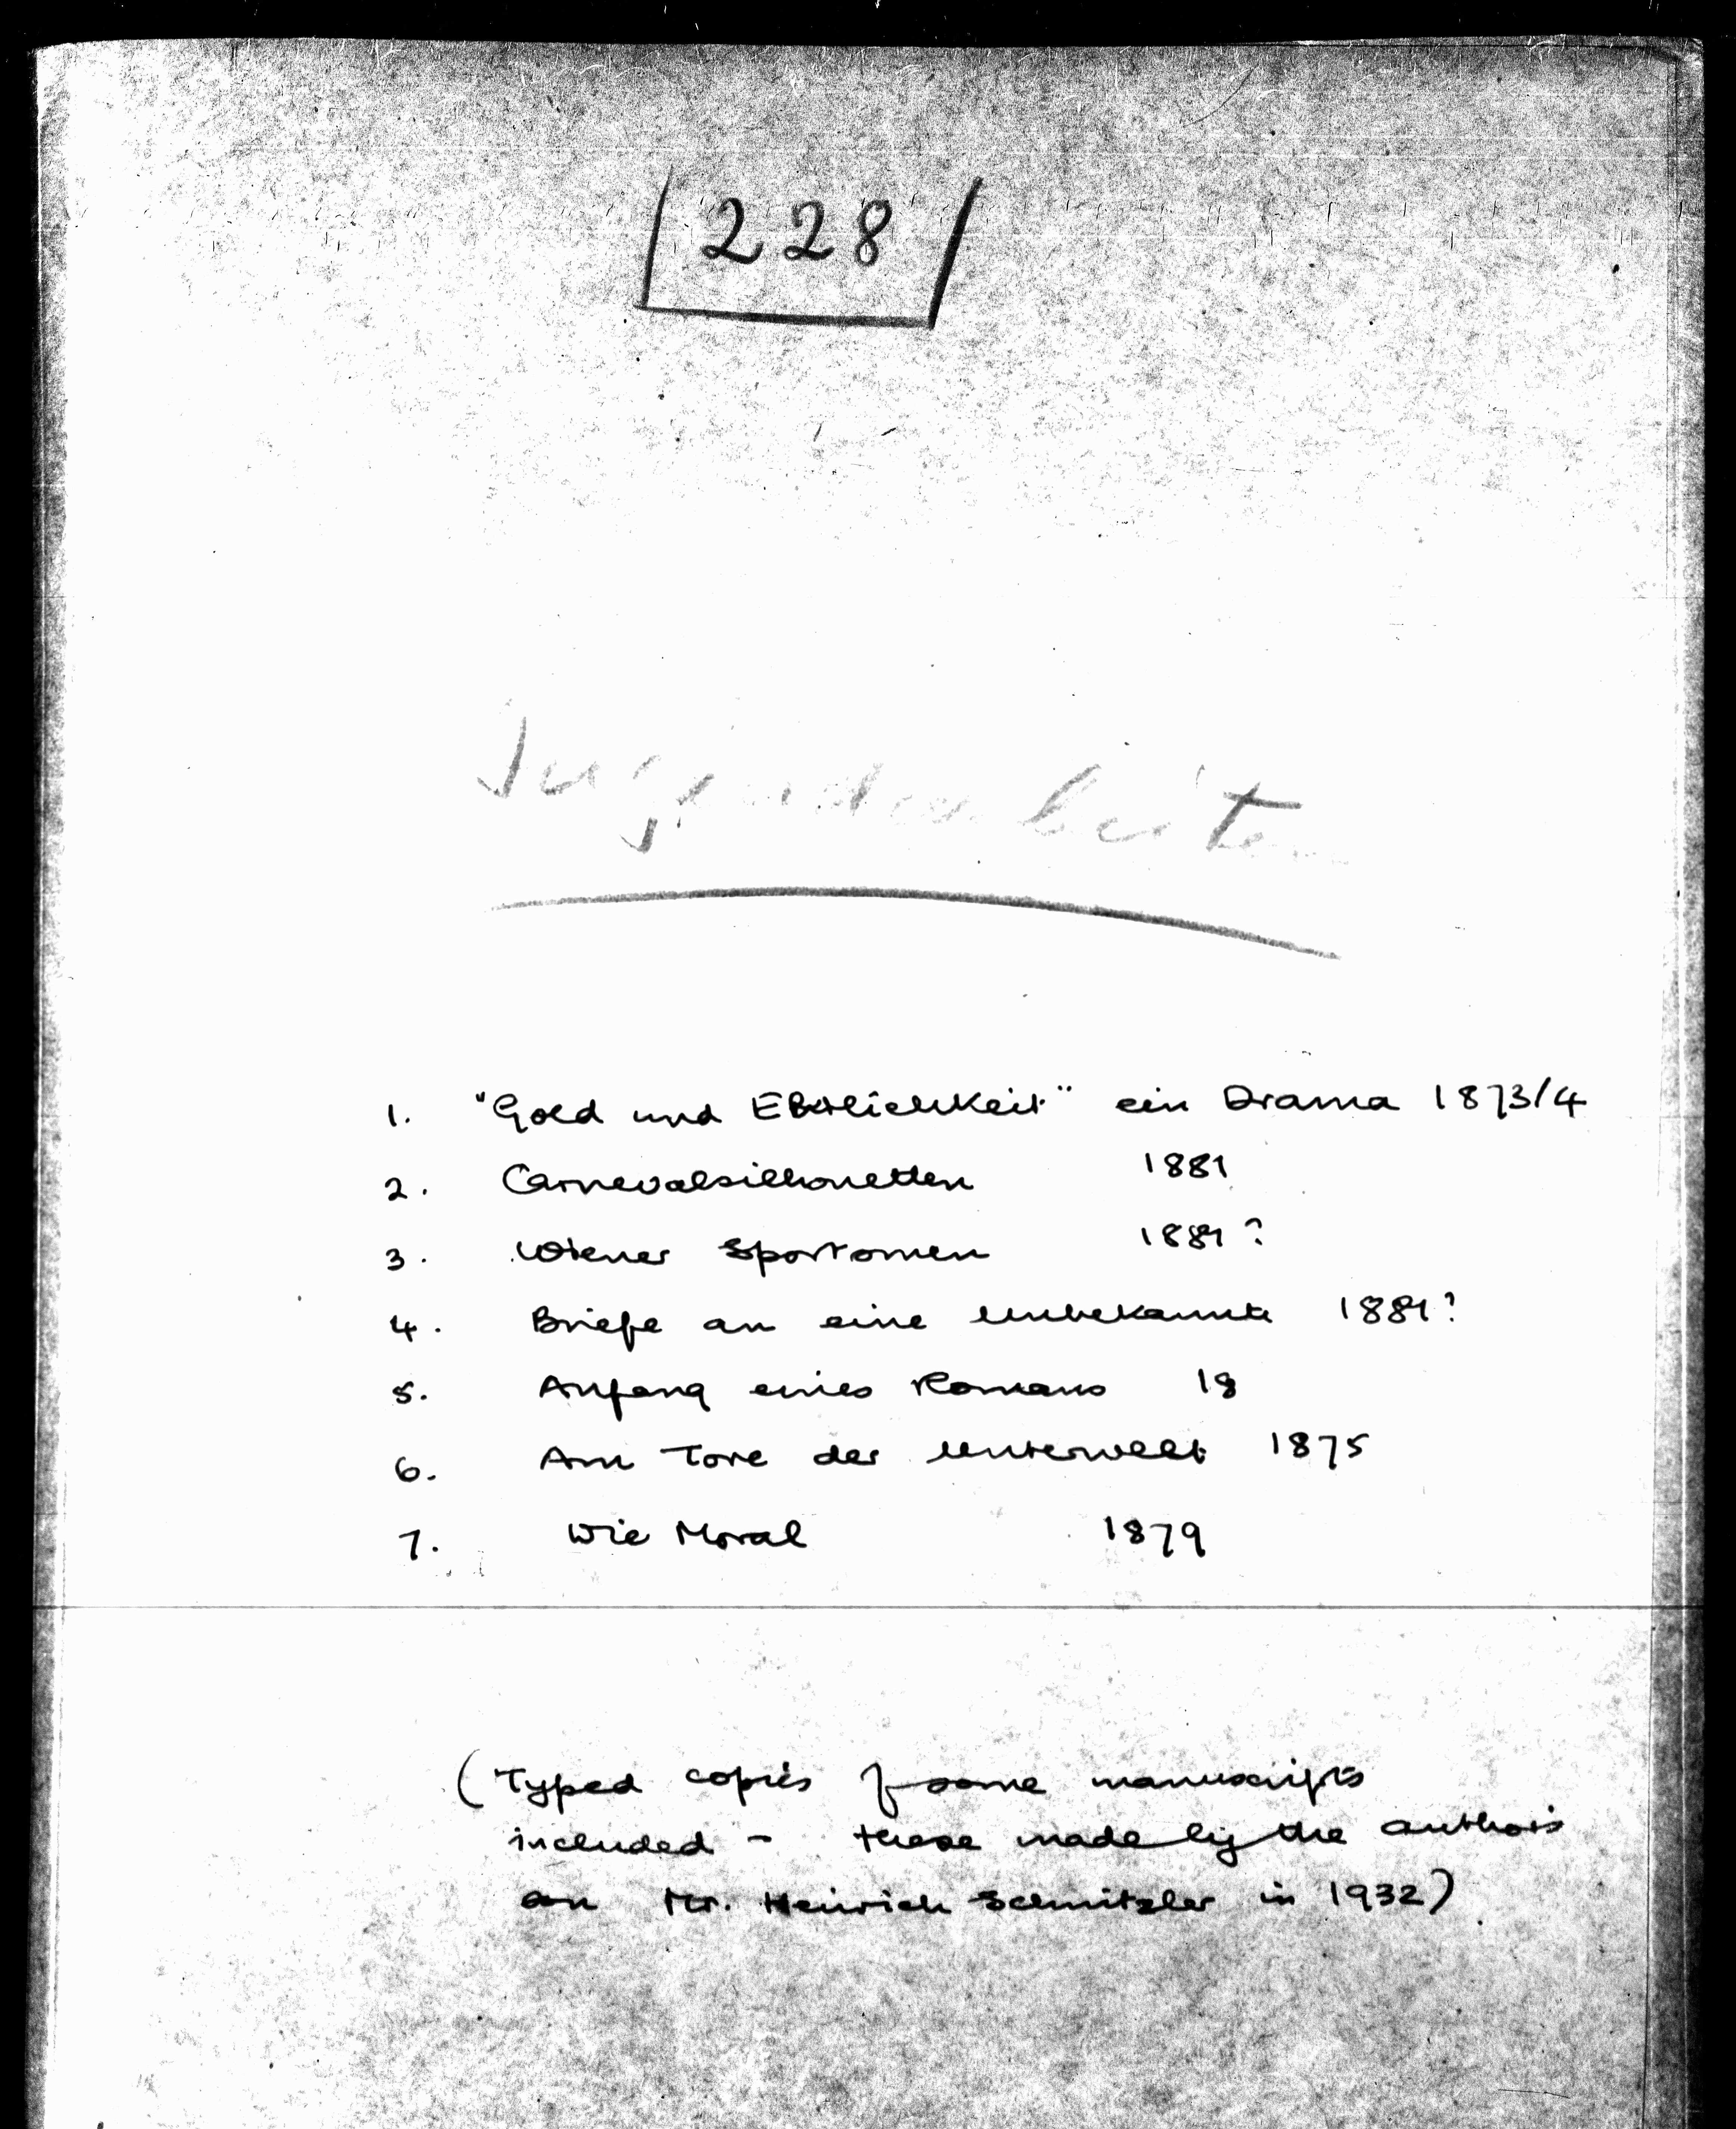 228
Jugendarbeiten
1. "Gold und Ehrlichkeit" ein Drama 1873/4
2. Carnevalsilhouetten 1881
3. Wiener 1881?
4. Briefe an eine Unbekannte 1881?
5. Anfang eines Romans 18
6. Am Tore der Unterwelt 1875
7. Wie Moral 1879
(Typed copies of some manuscripts
included - these made by the author's
son Mr. Heinrich Schnitzler in 1932)